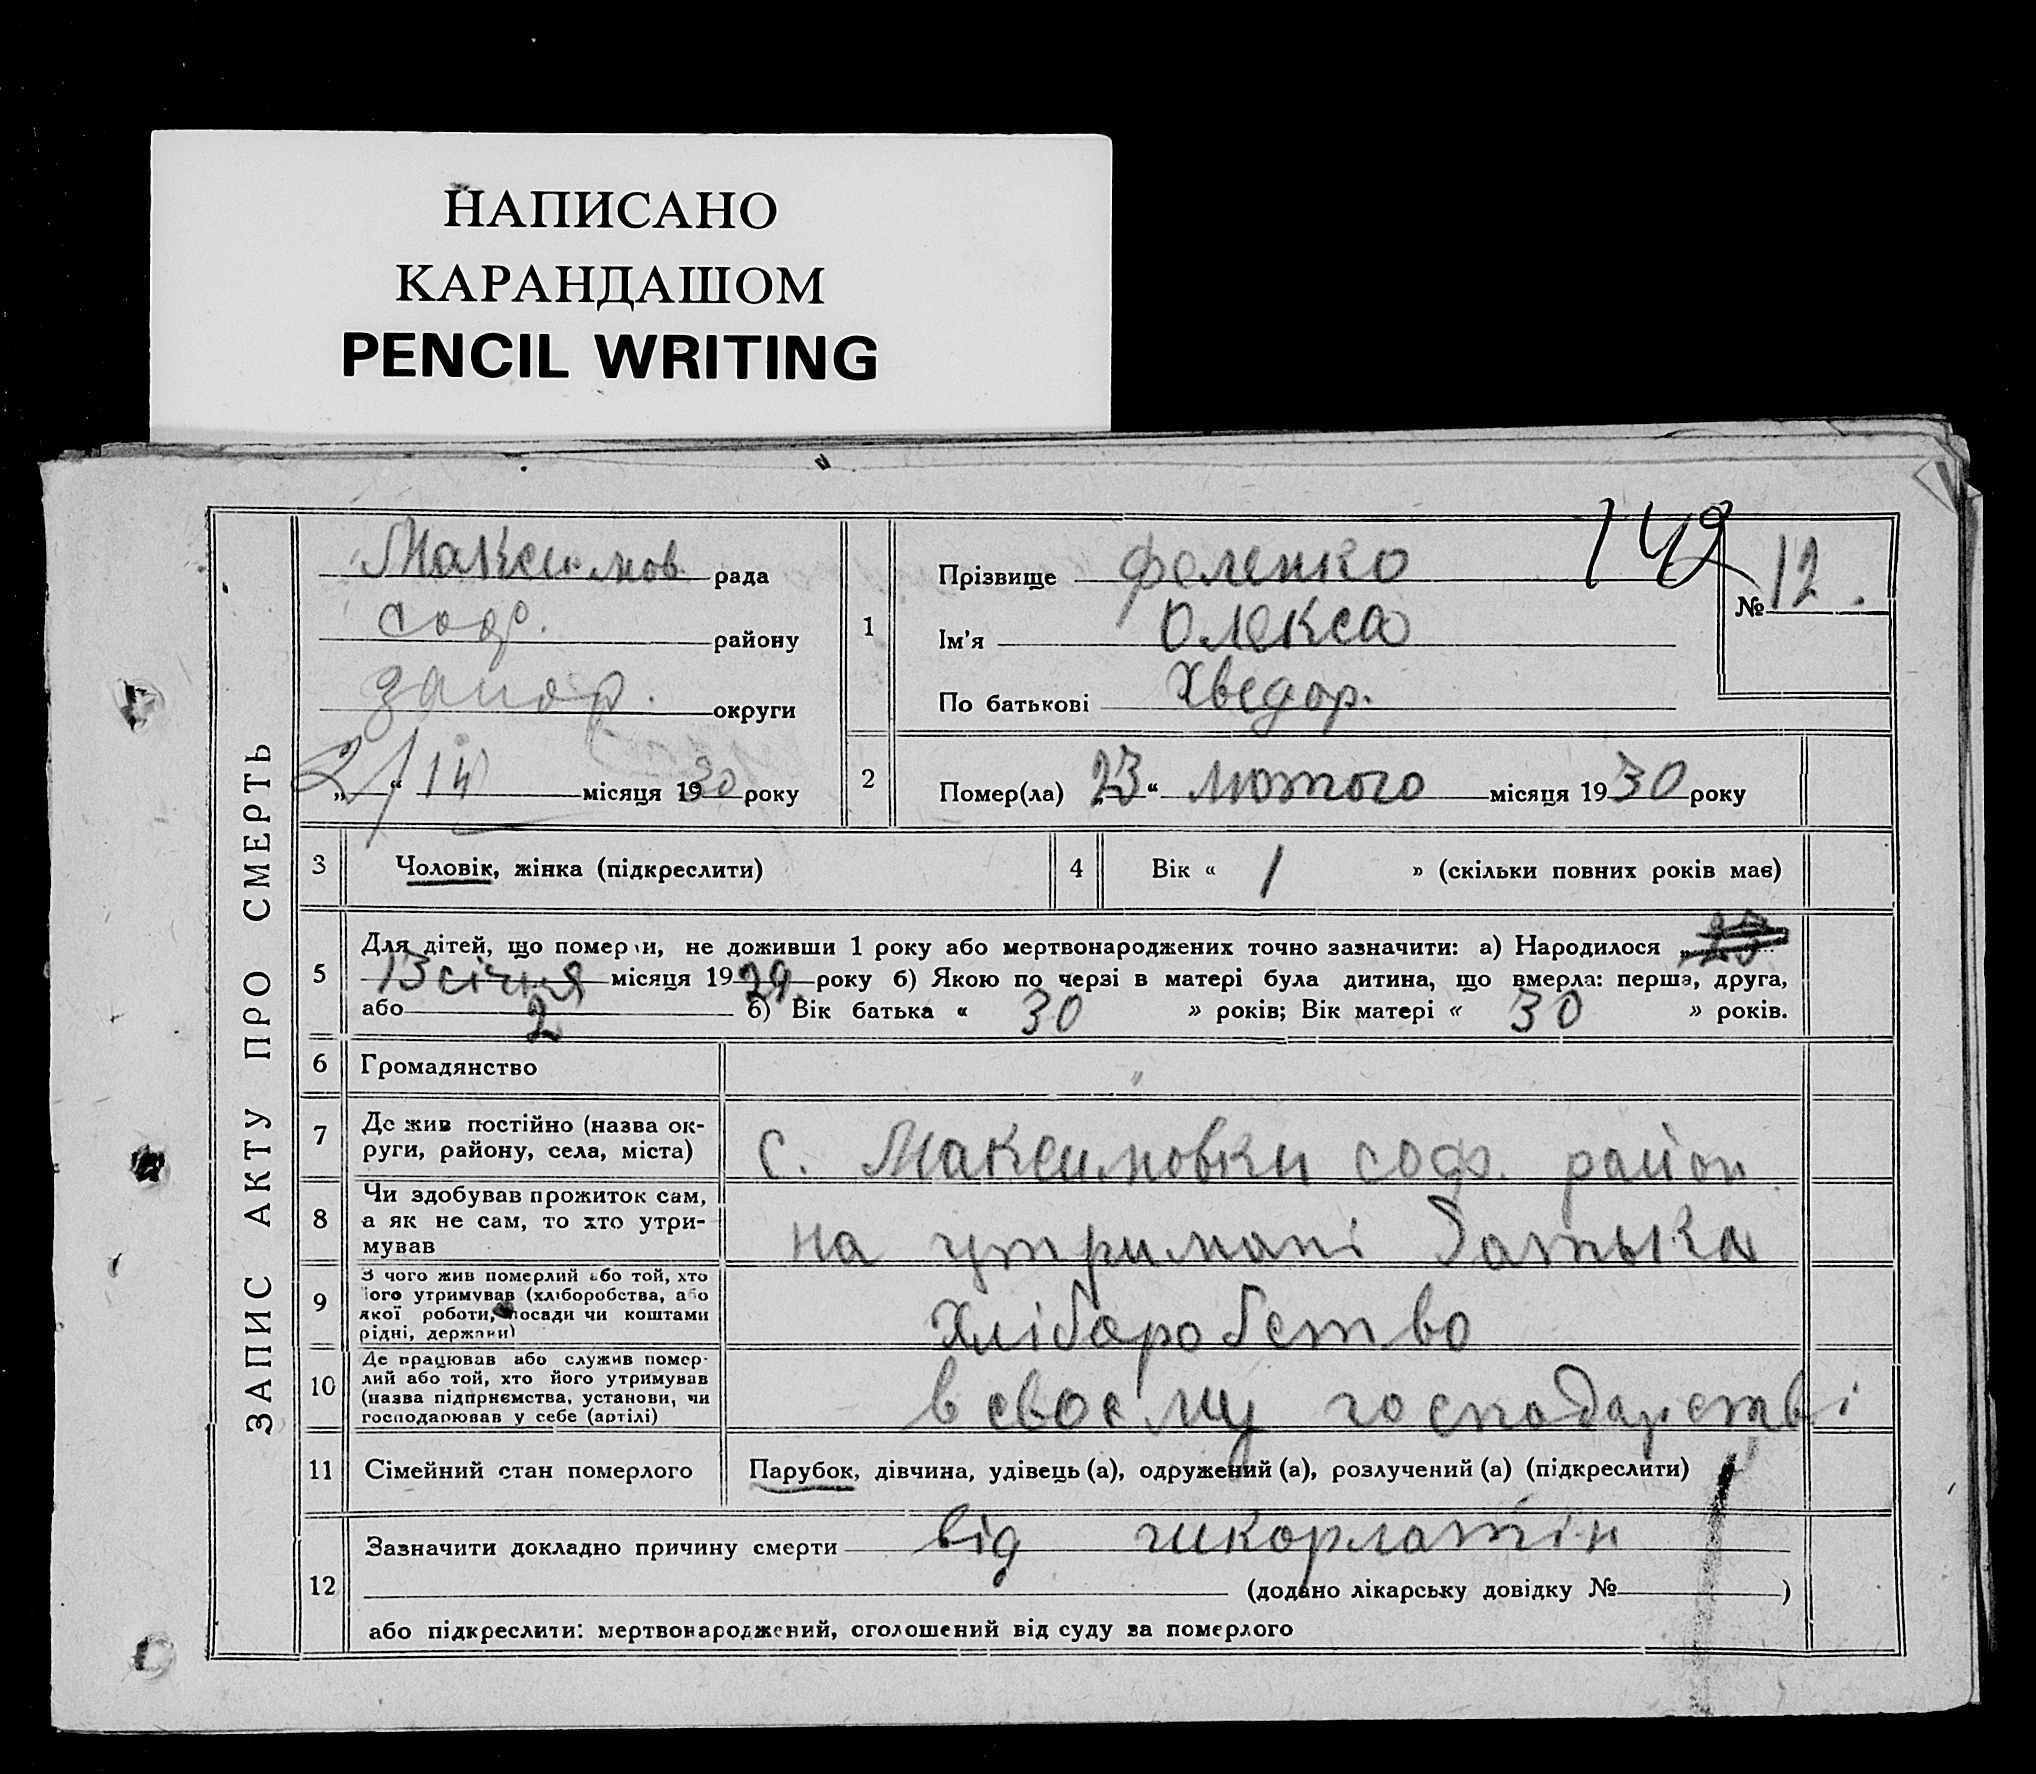 НАПИСАНО
КАРАНДАШОМ
PENCIL WRITING
142
ЗАПИС АКТУ ПРО СМЕРТЬ
Максимов рада
соф. району
запор. округи
„ “ 14 місяця 1930 року
1
Прізвище Феленко
Ім'я Олекса
По батькові Хведор.
№ 12.
2
Помер(ла) „23“ лютого місяця 1930 року
3 Чоловік, жінка (підкреслити)
4 Вік « 1 » (скільки повних років має)
5
Для дітей, що померли, не доживши 1 року або мертвонароджених точно зазначити: а) Народилося
13 січня місяця 1929 року б) Якою по черзі в матері була дитина, що вмерла: перша, друга,
або 2 б) Вік батька « 30 » років; Вік матері « 30 » років.
6 Громадянство "
7 Де жив постійно (назва ок-
руги, району, села, міста)
с. Максимовки соф. район
8 Чи здобував прожиток сам,
а як не сам, то хто утри-
мував
на утримані батька
9 З чого жив померлий або той, хто
його утримував (хліборобства, або
якої роботи, посади чи коштами
рідні, держави)
Хліборобство
10 Де працював або служив помер-
лий або той, хто його утримував
(назва підприємства, установи, чи
господарював у себе (артілі)
в своєму господарстві
11 Сімейний стан померлого
Парубок, дівчина, удівець (а), одружений (а), розлучений (а) (підкреслити)
12
Зазначити докладно причину смерти від шкорлатін
(додано лікарську довідку № )
або підкреслити: мертвонароджений, оголошений від суду за померлого